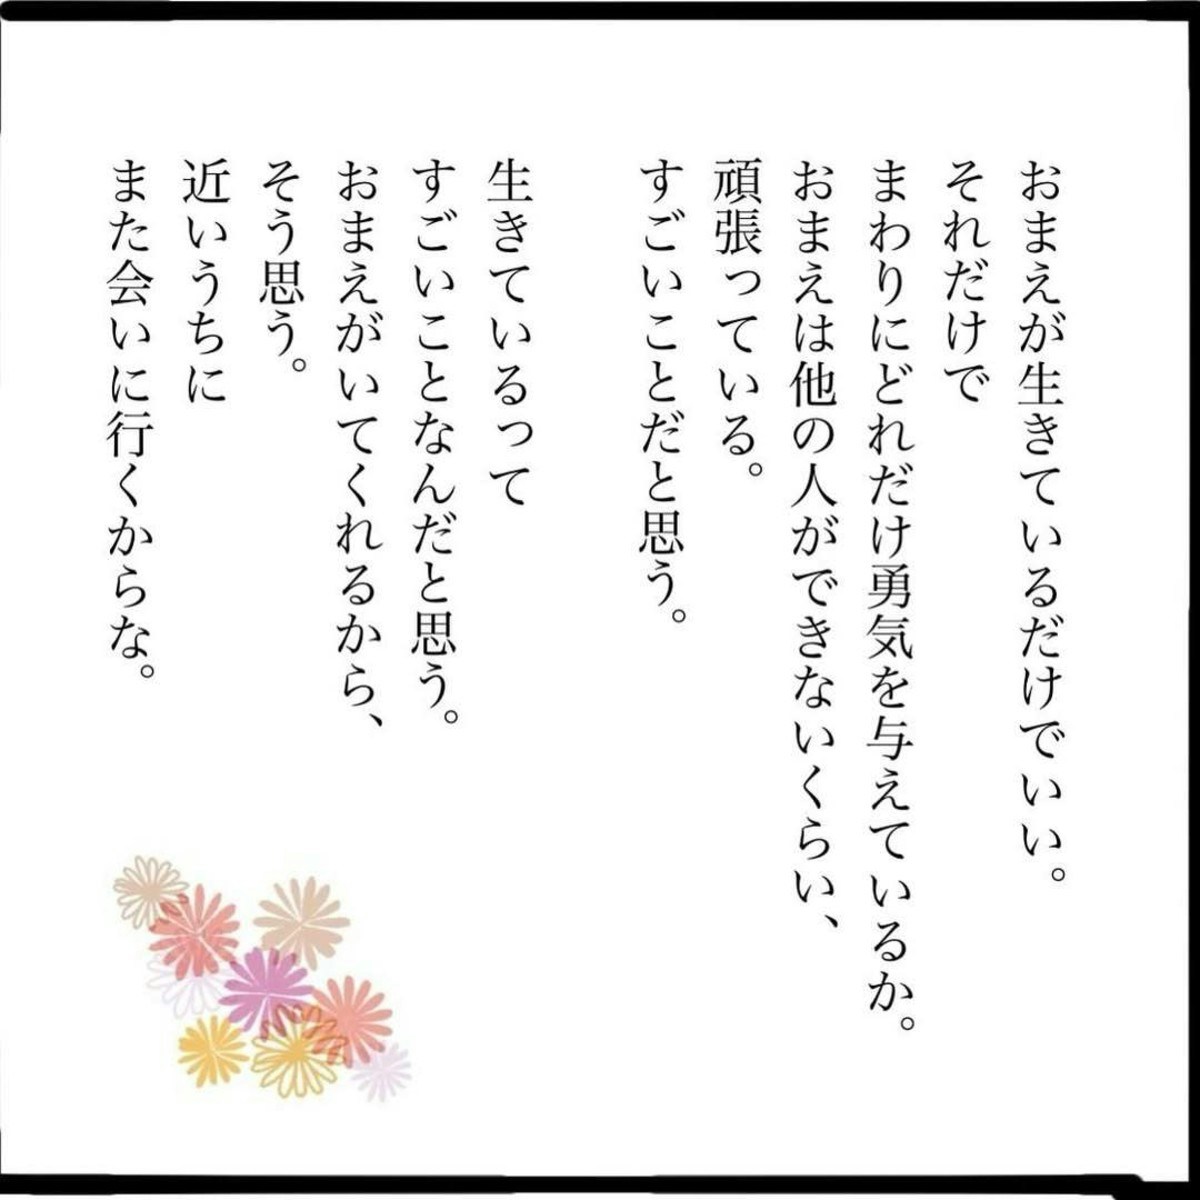 おまえが生きているだけでいい。
それだけで
まわりにどれだけ勇気を与えているか。
おまえは他の人ができないくらい、
頑張っている。
すごいことだと思う。
生きているって
すごいことなんだと思う。
おまえがいてくれるから、
そう思う。
近いうちに
また会いに行くからな。